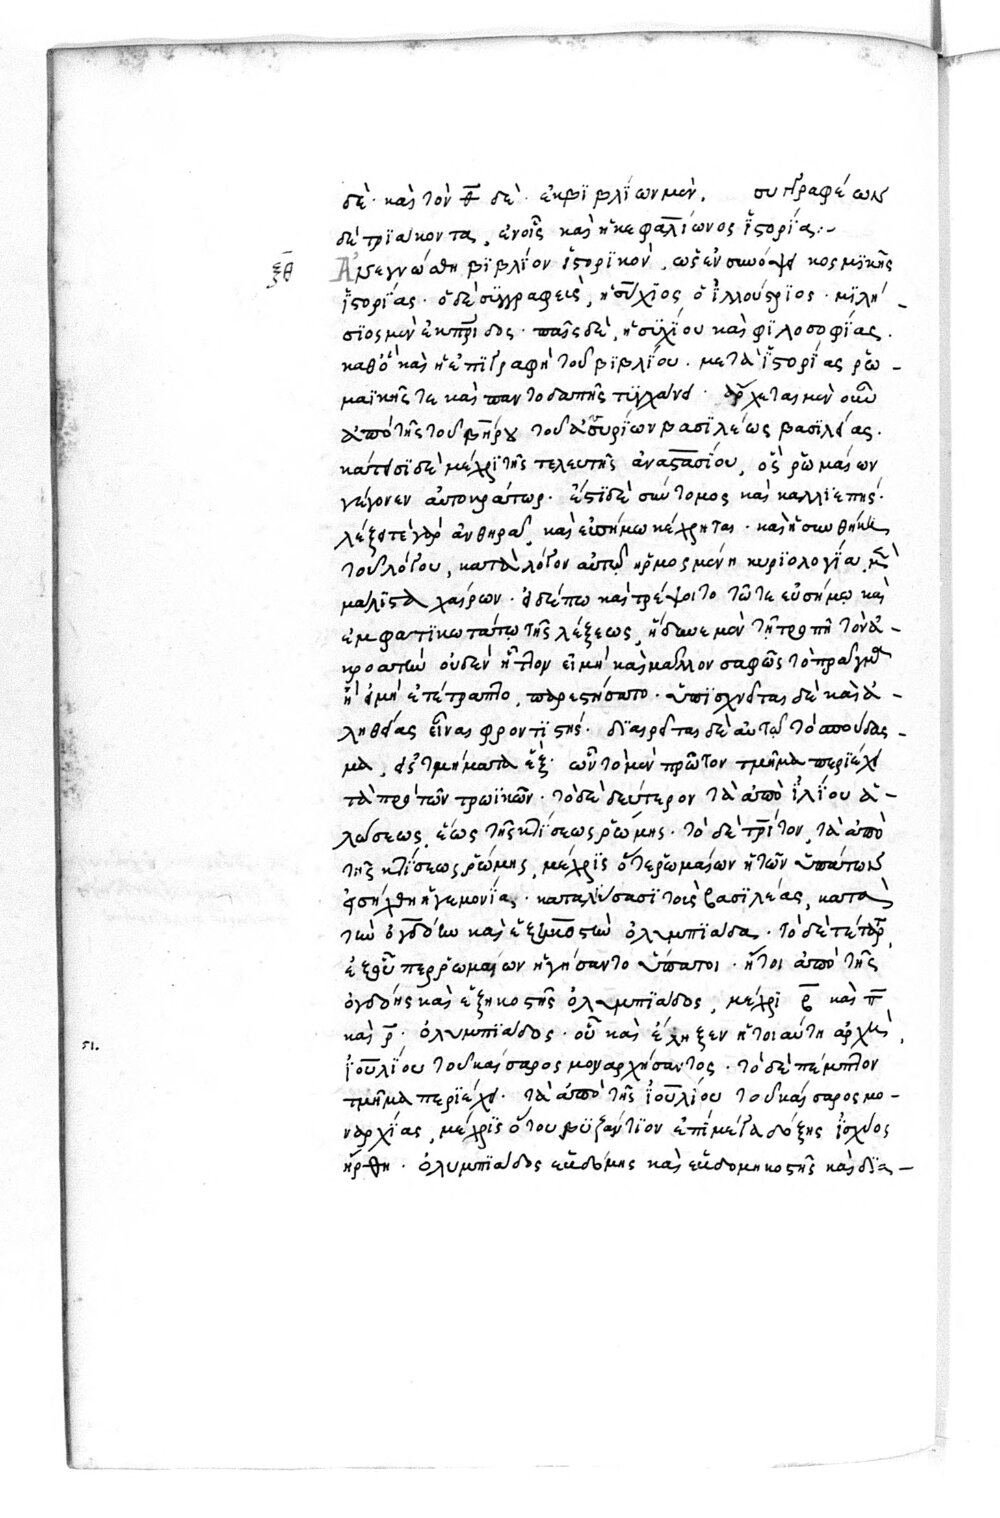 δὲ· καὶ τὸν φ̄ δὲ· ἐκ βϊβλΐων μὲν. συγγραφέων
δὲ τριάκοντα, ἐν οἷς καὶ ἡ κεφαλΐωνος ἱστορία:~
ξθ Ἀνεγνώσθη βιβλΐον ἱστορϊκὸν, ὡς ἐν συνόψει κοσμϊκῆς
ἱστορΐας· ὁ δὲ συγγραφεὺς, ἡσύχϊος ὁ ἰλλούστρϊος· μϊλή-
σϊος μὲν ἐκ πατρΐδος· παῖς δὲ, ἡσυχΐου καὶ φϊλοσοφΐας.
καθὸ καὶ ἡ ἐπϊγραφὴ τοῦ βϊβλΐου· μετὰ ἱστορΐας ῥω-
μαϊκῆς τε καὶ παντοδαπῆς τυγχάνει· ἄρχεται μὲν οὖν
ἀπὸ τῆς τοῦ βήλου τοῦ ἀσσυρΐων βασϊλέως βασϊλείας.
κάτεισϊ δὲ μέχρϊ τῆς τελευτῆς ἀναστασΐου, ὃς ῥωμαίων
γέγονεν αὐτοκράτωρ· ἔστϊ δὲ σύντομος καὶ καλλϊεπής·
λέξει τε γὰρ ἀνθηρᾶ, καὶ εὐσήμω κέχρηται· καὶ ἡ συνθήκη
τοῦ λόγου, κατὰ λόγον αὐτῶ ἡρμοσμένη κυρϊολογΐα,
μάλϊστα χαίρων· εἰ δέ πω καὶ τρέψοιτο τῶ τε εὐσήμω καὶ
ἐμφατϊκωτάτω τῆς λέξεως, ἥδυνε μὲν τῆ τροπῆ τὸν ἀ-
κροατὴν οὐδὲν ἧττον εἰ μὴ καὶ μᾶλλον σαφῶς τὸ πρᾶγμα
ἢ εἰ μὴ ἐτέτραπτο, παρεστήσατο· ὑπϊσχνεῖται δὲ καὶ ἀ-
ληθείας εἶναι φροντϊστής· δϊαιρεῖται δὲ αὐτῶ τὸ σπούδασ-
μα, εἰς τμήματα ἕξ· ὧν τὸ μὲν πρῶτον τμῆμα περϊέχει
τὰ πρὸ τῶν τρωϊκῶν· τὸ δὲ δεύτερον τὰ ἀπὸ ἰλΐου ἁ-
λώσεως, ἕως τῆς κτΐσεως ῥώμης· τὸ δὲ τρΐτον, τὰ ἀπὸ
τῆς κτΐσεως ῥώμης, μέχρϊς ὅτε ῥωμαίων ἡ τῶν ὑπάτων
εἰσήχθη ἡγεμονΐα, καταλύσασϊ τοῖς βασϊλέας, κατὰ
τὴν ὀγδόην καὶ ἑξηκοστὴν ὀλυμπϊάδα· τὸ δὲ τέταρ,
ἐξ οὗ περ ῥωμαίων ἡγήσαντο ὕπατοι· ἤτοι ἀπὸ τῆς
ὀγδόης καὶ ἑξηκοστῆς ὀλυμπϊάδος, μέχρϊ β̄ καὶ π̄
καὶ ρ̄· ὀλυμπϊάδος· οὗ καὶ ἔληξεν ἡ τοιαύτη ἀρχὴ,
ϛι.
ἰουλΐου τοῦ καίσαρος μοναρχήσαντος· τὸ δὲ πέμπτον
τμῆμα περϊέχει· τὰ ἀπὸ τῆς ἰουλΐου τοῦ καίσαρος μο-
ναρχΐας, μέχρϊς ὅτου βυζάντϊον ἐπὶ μέγα δόξης ἰσχύος
ἤρθη· ὀλυμπϊάδος ἑβδόμης καὶ ἑβδομηκοστῆς καὶ δϊα-